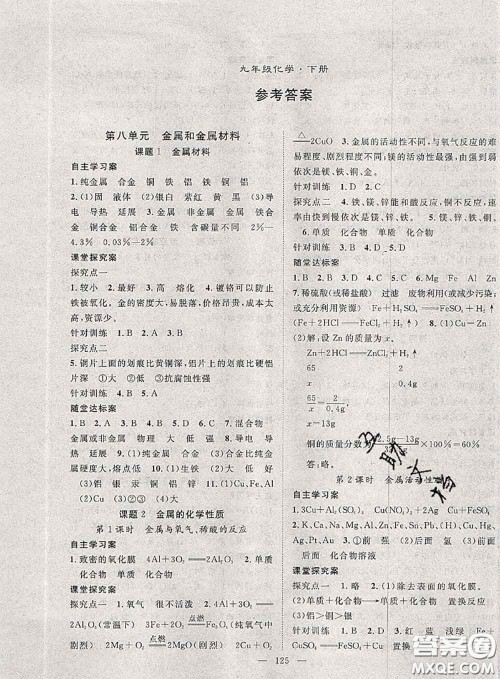 九年级化学·下册
参考答案
第八单元 金属和金属材料
课题1 金属材料
自主学习案
1.纯金属 合金 铜 铁 铝 铁 铜 铝
2.(1)固 液体 (2)银白 紫红 黄 黑 (3)导
电 导热 延展 3.金属 非金属 金属 铁合
金 铜合金 铝合金 铁 含碳量不同 2%~
4.3% 0.03%~2%
课堂探究案
探究点一
1.较小 2.最好 3.高 4.镀铬不可以防止
铁被氧化。金的密度大,易脱落,价格昂贵,成本太
高,资源少。
针对训练 1.B 2.A
探究点二
5.铜片上面的划痕比黄铜深,铝片上的划痕比硬铝
片深 ①大 ②低 ③抗腐蚀性强
针对训练 3.D 4.A 5.A
随堂达标案
1.D 2.D 3.B 4.C 5.B 6.C 7.混合物
金属或非金属 物理 大 低 强 8.(1)导电
导热 延展 (2)②④ (3)①生铁 ②合金比纯
金属硬度大,熔点低 9.(1)生铁 钢 大 (2)
铝 银 汞 铜 铝 钨 (3)①②④
课题2 金属的化学性质
第1课时 金属与氧气、稀酸的反应
自主学习案
1.致密的氧化膜 4Al+3O₂══2Al₂O₃ 2.单
质 化合物 单质 化合物
课堂探究案
探究点一 1.氧气 很不活泼 2.4Al+3O₂══
2Al₂O₃(常温下) 3Fe+2O₂ 点燃══ Fe₃O₄(点燃
剧烈) 2Mg+O₂ 点燃══ 2MgO(剧烈) 2Cu+O₂
△══2CuO 3.金属的活动性不同,与氧气反应的难
易程度、剧烈程度不同。镁的活动性最强,由强到弱
依次是镁、铁、铜。
针对训练 1.B 2.B
探究点二 4.铁、镁、锌能和酸反应,铜不反应,速
率由快到慢依次是镁、锌、铁。 5.镁、锌、铁、铜
6.单质 化合物 单质 化合物
针对训练 3.B 4.D
随堂达标案
1.B 2.D 3.C 4.C 5.D 6.Mg Fe Al
7.稀硫酸(或稀盐酸) 过滤 废物利用(或减少污
染) Fe+H₂SO₄══FeSO₄+H₂↑
(Fe+2HCl══FeCl₂+H₂↑) 8.(1)Cu—Zn
(2)解:设合金中锌的质量为x。
Zn+2HCl══ZnCl₂+H₂↑
65 2
x 0.4g
65/x=2/0.4g
x=13g
铜的质量分数为(32.5g-13g)/32.5g×100%=60%
答:略。
第2课时 金属活动性
自主学习案
1.3Cu+Al₂(SO₄)₃ Cu+FeSO₄
2.K、Ca、Na、Mg、Al、Zn、Fe、Sn、Pb、Cu、
Hg、Ag、Pt、Au (1)强 (2)前面 前面 前面
后面 化合物溶液
课堂探究案
探究点一 1.略 (1)除去表面的氧化膜。
(2)单质+化合物 单质+化合物 置换反应
针对训练
探究点二 3.红 蓝 浅绿 Fe+
CuSO₄══Cu+FeSO₄ 置换反应 剧烈
125